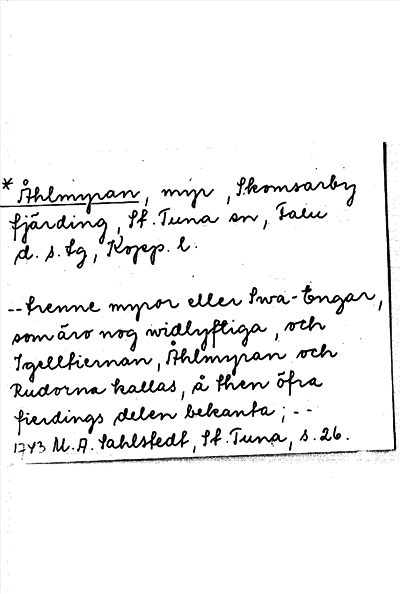 * Åhlmyran, myr, Skomsarby
fjärding, St. Tuna sn, Falu
d. s. lg, Kopp. l.
--trenne myror eller Swa-Engar,
som äro nog widlyftiga, och
Igelltiernan, Åhlmyran och
Rudorna kallas, å then öfra
fierdings delen bekanta; --
1743 M. A. Sahlstedt, St. Tuna, s. 26.